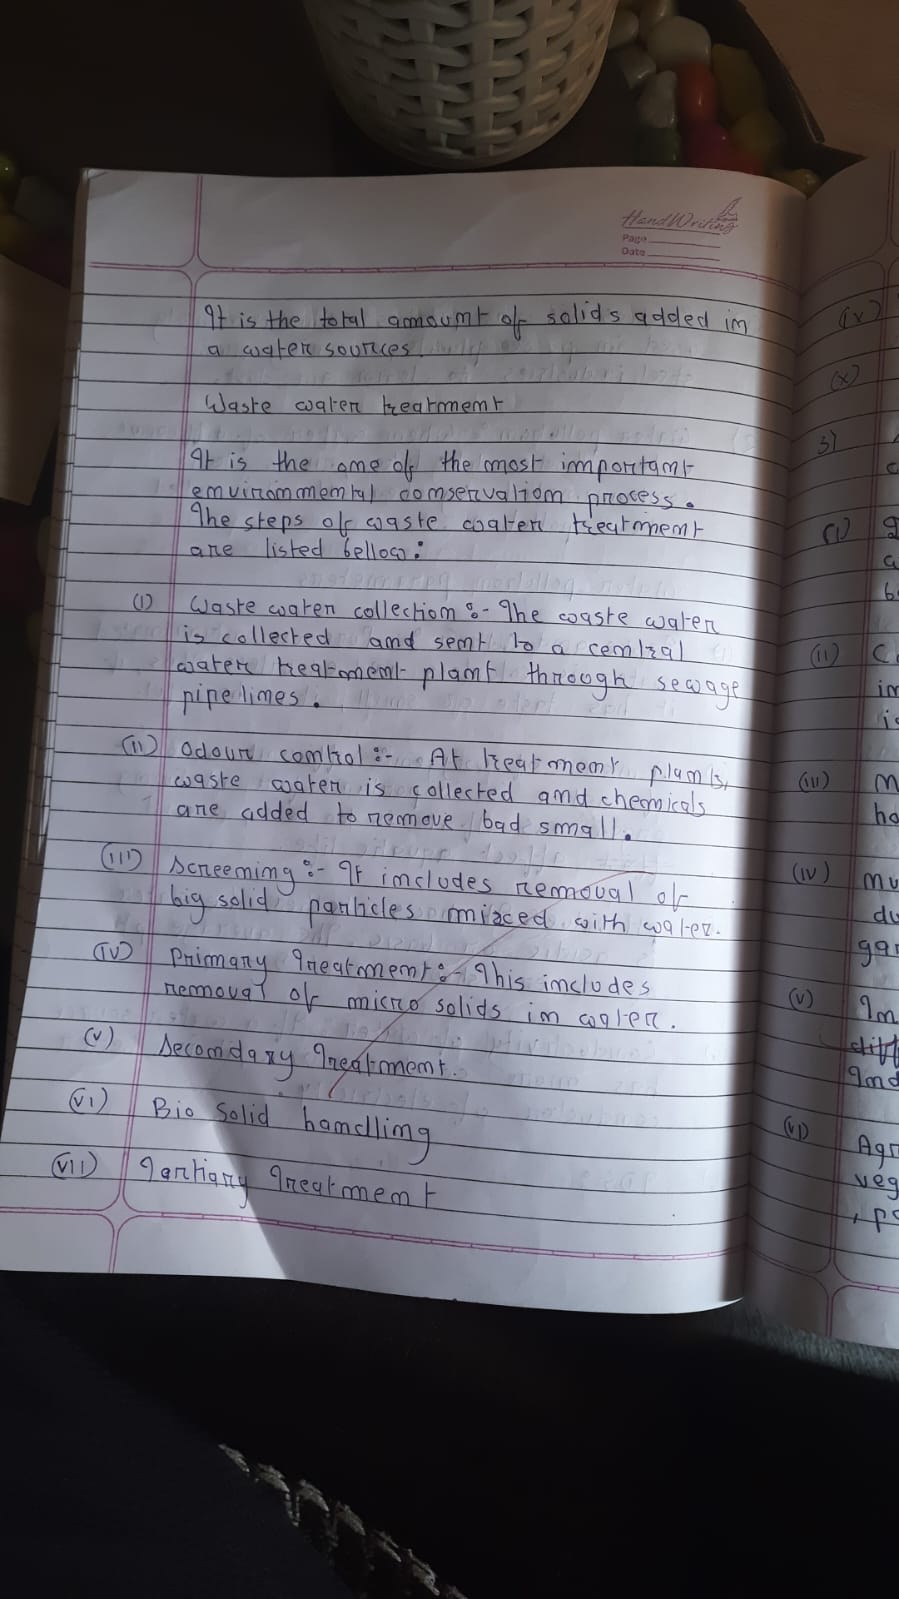 HandWriting
Page
Date
It is the total amount of solids added in
a water sources.
Waste water treatment
It is the one of the most important
environmental conservation process.
The steps of waste water treatment
are listed bellow:
(i) Waste water collection :- The waste water
is collected and sent to a central
water treatment plant through sewage
pipelines.
(ii) Odour control :- At treatment plants,
waste water is collected and chemicals
are added to remove bad small.
(iii) Screening :- It includes removal of
big solid particles mixed with water.
(iv) Primary Treatment :- This includes
removal of micro solids in water.
(v) Secondary Treatment.
(vi) Bio solid handling
(vii) Tartiary Treatment
(ix)
(x)
3)
(i)
(ii)
(iii)
(iv) mu
du
gar
(v) In
diff
Ind
(vi) Agr
veg
, po